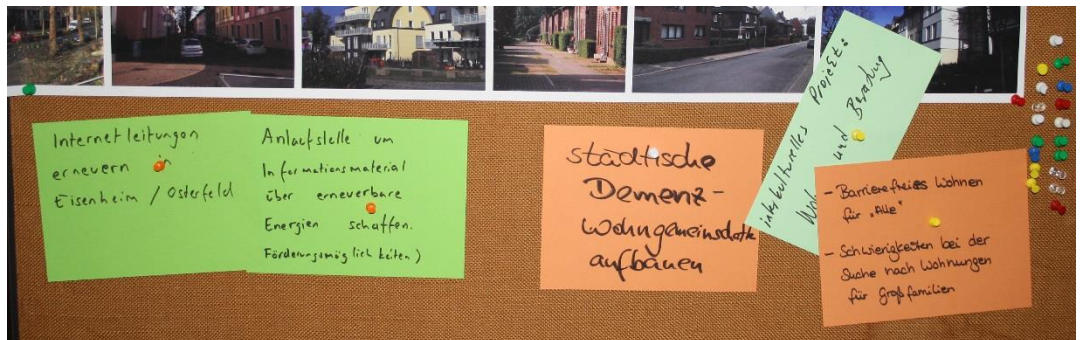 Internetleitungen
erneuern in
Eisenheim / Osterfeld
Anlaufstelle um
Informationsmaterial
über erneuerbare
Energien schaffen.
Förderungsmöglichkeiten)
städtische
Demenz-
wohngemeinschaft
aufbauen
interkulturelles Projekt:
und Beratung
- Barrierefreies Wohnen
für „Alle"
- Schwierigkeiten bei der
Suche nach Wohnungen
für Großfamilien